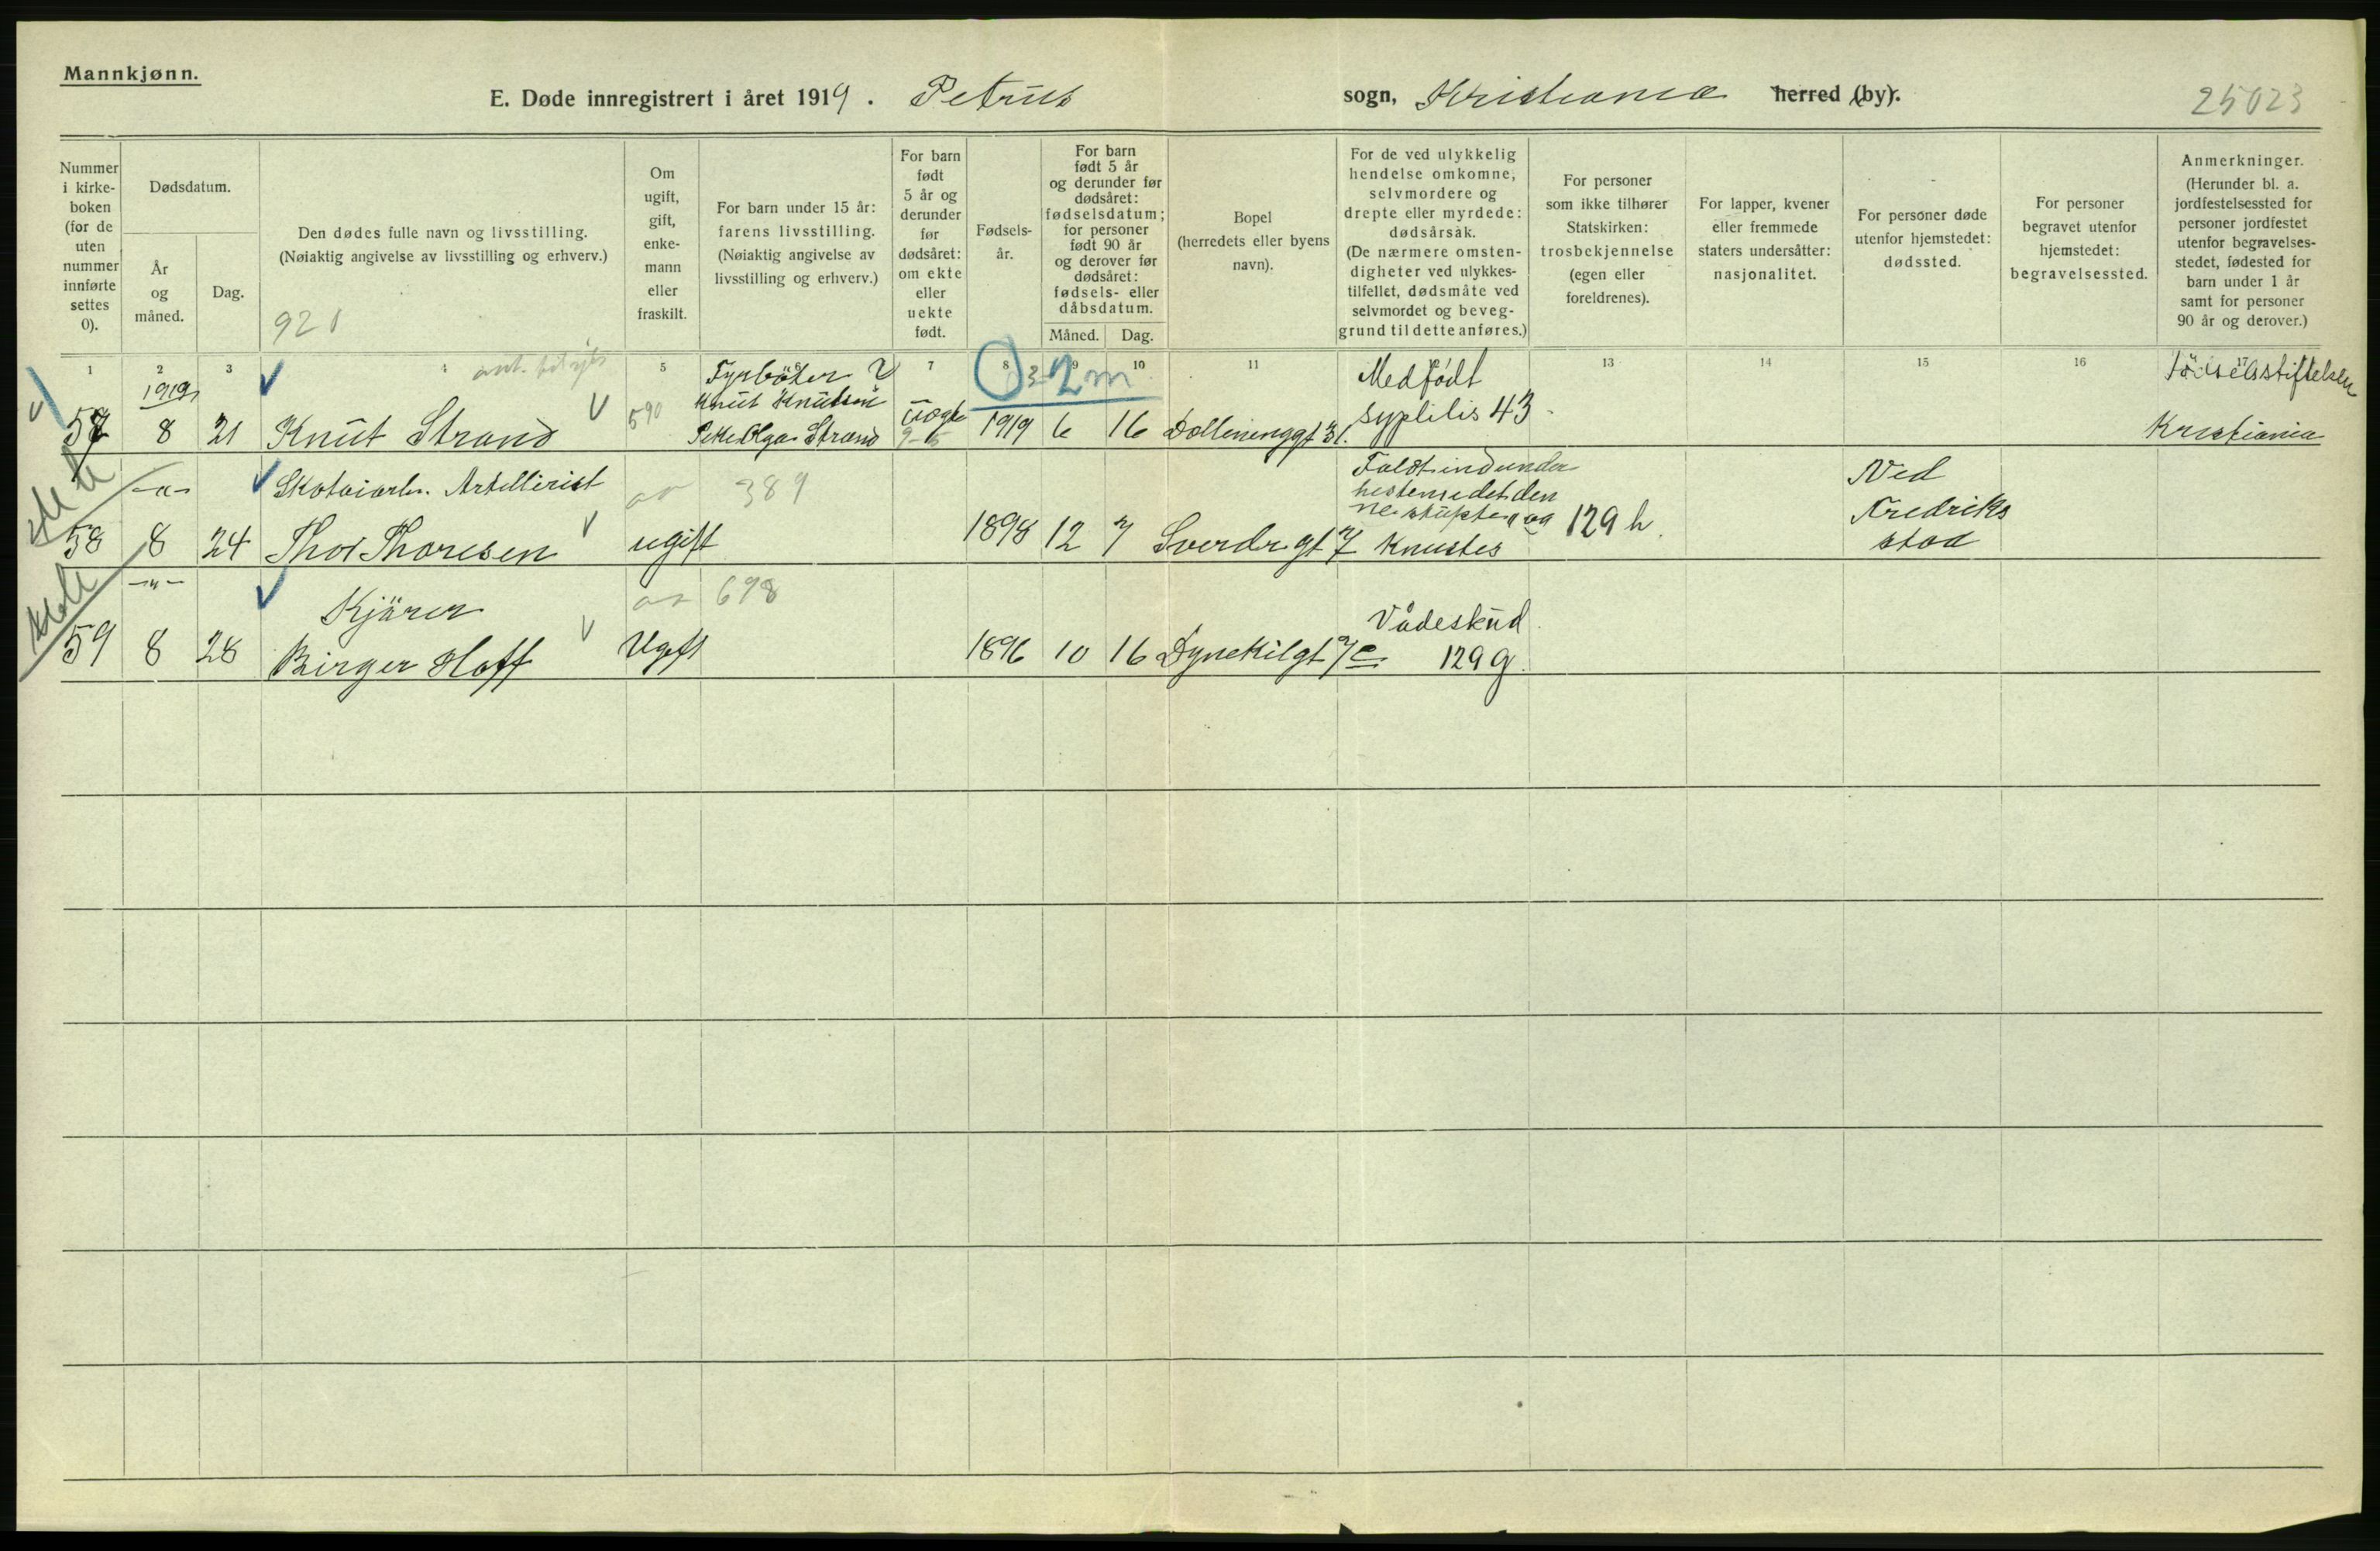 Mannkjønn.
E. Døde innregistrert i året 1919. Petrus sogn, Kristiania herred (by).
25023
Nummer i kirke-boken (for de uten nummer innførte settes 0).
Dødsdatum.
År og måned.
Dag.
Den dødes fulle navn og livsstilling.
(Nøiaktig angivelse av livsstilling og erhverv.)
920
Om ugift, gift, enke-mann eller fraskilt.
For barn under 15 år: farens livsstilling.
(Nøiaktig angivelse av livsstilling og erhverv.)
For barn født 5 år og derunder før dødsåret: om ekte eller uekte født.
Fødsels-år.
For barn født 5 år og derunder før dødsåret: fødselsdatum; for personer født 90 år og derover før dødsåret: fødsels- eller dåbsdatum.
Måned.
Dag.
Bopel
(herredets eller byens navn).
For de ved ulykkelig hendelse omkomne, selvmordere og drepte eller myrdede: dødsårsak.
(De nærmere omsten-digheter ved ulykkes-tilfellet, dødsmåte ved selvmordet og beveg-grund til dette anføres.)
For personer som ikke tilhører Statskirken: trosbekjennelse
(egen eller foreldrenes).
For lapper, kvener eller fremmede staters undersåtter: nasjonalitet.
For personer døde utenfor hjemstedet: dødssted.
For personer begravet utenfor hjemstedet: begravelsessted.
Anmerkninger.
(Herunder bl. a. jordfestelsessted for personer jordfestet utenfor begravelses-stedet, fødested for barn under 1 år samt for personer 90 år og derover.)
1 2 3 4 5 7 8 9 10 11 13 14 15 16 17
2 m
1919
57 8 21 Knut Strand
590
Fyrbøter
Knut Knutsen
Olga Strand
1919 6 16
Medfødt
syplilis 43
Fødselsstiftelsen
Kristiania
—"—
Skotøiarb. Artellerist
389
58 8 24 Thor Thoresen ugift 1898 12 7 Sverdr.gt 7
Faldt ind under
hesten idet den
og
Knustes
129 h.
Ved
Fredriks
stad
—"—
Kjører
698
59 8 28 Birger Hoff Ugift 1896 10 16 Dynekilgt
Vådeskud
129 g.